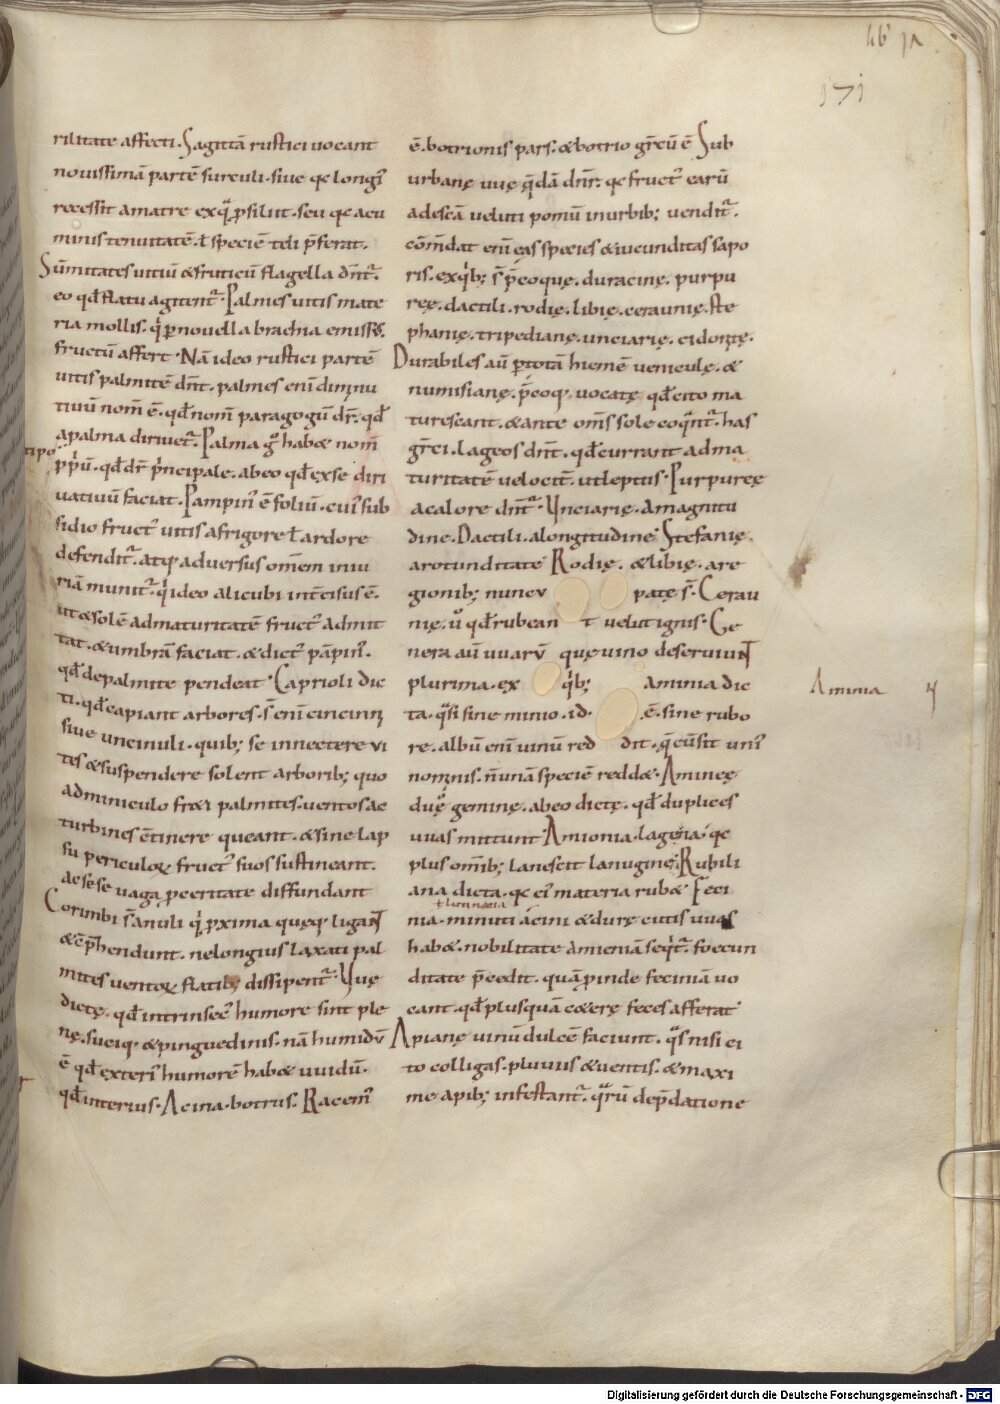 lib̕
171
rilitate affecti. Sagittā rustici uocant
nouissimā partē surculi. siue qc longi᷒
recessit amatre ex q̄ p̄siluit. seu qc acu
minis tenuitatē. ł speciē teli p̄ferat.
Sūmitates uitiū & fruticū flagella dn̄t᷒.
eo qđ flatu agitent᷒. Palmes uitis mate
ria mollis. q̇ ꝑ nouella brachia emissus.
fructū affert. Nā ideo rustici partē
uitis palmitē dn̄t. palmes enī diminu
tiuū nom̄ ē. qđ nom̄ paragogū dr̄. qđ
apalma diriuet᷒. Palma g̊ hab& nom̄
tipo
ppⁱū. qđ dr̄ pⁱncipale. ab eo qđ ex se diri
uatiuū faciat. Pampin᷒ ē foliū. cui᷒ sub
sidio fruct᷒ uitis afrigore ł ardore
defendit᷒. atq; aduersus om̄em iniu
riā munit᷒. q̇ ideo alicubi int̄cisus ē.
ut & solē admaturitatē fruct᷒ admit
tat. & umbrā faciat. & dict᷒ pāpin᷒.
qđ depalmite pendeat. Caprioli dic
ti. qđ capiant arbores. s̄ enī cincinni
siue uncinuli. quib; se innectere vi
tes & suspendere solent arborib; quo
adminiculo freti palmites. uentos ac
turbines c̄tinere queant. & sine lap
su periculoꝝ fruct᷒ suos sustineant.
ac sese uaga ꝓceritate diffundant
Corimbi s̄ anuli q̇ ꝓxima queq; ligant
& cp̄hendunt. ne longius laxati pal
mites uentoꝝ flatib; dissipent᷒. Vuę
dictę. qđ intrinsec᷒ humore sint ple
nę. suciq; & pinguedinis. nā humidū
ē qđ exteri᷒ humorē hab& uuidū.
qđ interius. Acina. botrus. Racem᷒
ē. botrionis pars. & botrio gr̄cū ē Sub
urbanę uuę q̄dā dn̄r. qc fruct᷒ earū
adescā ueluti pomū inurbib; uendit᷒.
cōm̄dat enī eas species & iucunditas sapo
ris. ex q̇b; s̄ p̄coquę. duracinę. purpu
reę. dactili. rodię. libię. ceraunię. ste
phanię. tripedianę. unciarię. cidonię.
Durabiles aū ꝑ totā hiemē ueniculę. &
numisianę. p̄coq; uocatę qđ cito ma
turescant. & ante om̄s sole coqn̄t᷒. has
gr̄ci. lageos dn̄t. qđ currant ad ma
turitatē uelocit̄. ut leptus. Purpureę
acalore dn̄t᷒. Unciarię. Amagnitu
dine. Dactili. alongitudine. Stefanię.
arotunditate. Rodię. & libię. are
gionib; nuncu patę s̄. Cerau
nię. ů qđ rubean t uelut ignis. Ge
nera aū uuarū quę uino deseruiunt
plurima. ex q̇b; aminia dic
Aminia
ta. qⁱsi sine minio. id. ē. sine rubo
re. albū enī uinū red dit. q̄ cū sit uni᷒
nominis. n̄ unā speciē redd&. Amineę
duę geminę. ab eo dictę. qđ duplices
uuas mittunt. Amionia. lagena. qc
plus om̄ib; lanescit lanugine. Rubili
ana dicta. qc ei᷒ materia rub& Feci
nia. minuti ācini & durę cutis uuas
hab&. nobilitate āmieniā seq̇t᷒. foecun
ditate p̄cedit. quā ꝓinde feciniā uo
cant. qđ plus quā c&erę feces afferat
Apianę uinū dulcē faciunt. q̊s nisi ci
to colligas. pluuiis & uentis. & maxi
me apib; infestant᷒. q̊rū dep̄datione
Digitalisierung gefördert durch die Deutsche Forschungsgemeinschaft - DFG